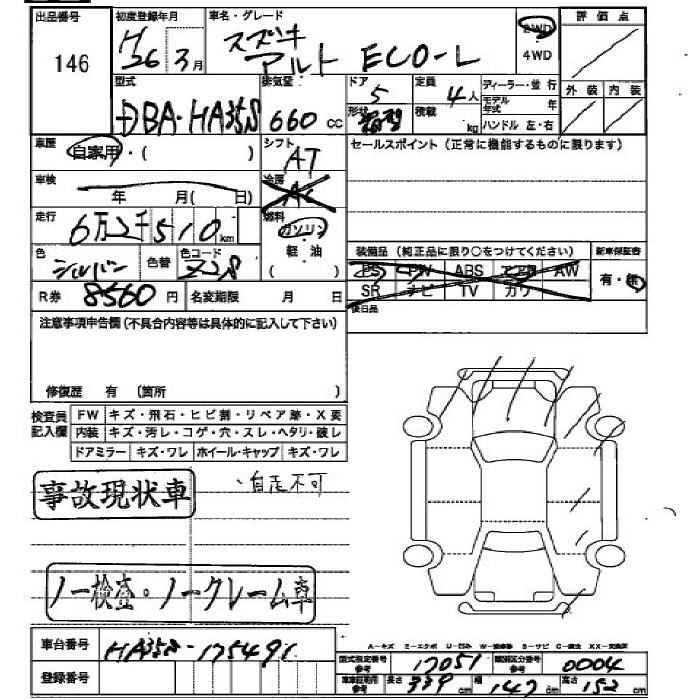 出品番号 初度登録年月 車名・グレード 評価点
146 H26 3月 スズキ アルト ECO-L 2WD 4WD
型式 排気量 ドア 定員 ディーラー・並行 外装 内装
DBA-HA35S 660cc 5 4人 モデル年式 年
形状 積載 kg ハンドル 左・右
車歴 自家用・( ) シフト AT セールスポイント(正常に機能するものに限ります)
車検 年 月( 日) 冷房 AC
走行 6万2千510km 燃料 ガソリン
色 シルバー 色替 色コード Z2S 軽油 ( ) 装備品(純正品に限り○をつけてください) 新車保証書
PS PW ABS エアB AW 有・無
R券 8560円 名変期限 月 日 SR ナビ TV カワ
後日品
注意事項申告欄(不具合内容等は具体的に記入して下さい)
修復歴 有(箇所 )
検査員記入欄 FW キズ・飛石・ヒビ割・リペア跡・X要
内装 キズ・汚レ・コゲ・穴・スレ・ヘタリ・破レ
ドアミラー キズ・ワレ ホイール・キャップ キズ・ワレ
事故現状車 、自走不可
ノー検査・ノークレーム車
車台番号 HA35S-175491
A-キズ E-エクボ U-凹み W-補修跡 S-サビ C-腐食 XX-交換済
型式指定番号参考 17051 類別区分番号参考 0004
登録番号 車車証明用参考 長さ 339cm 幅 147cm 高さ 152cm